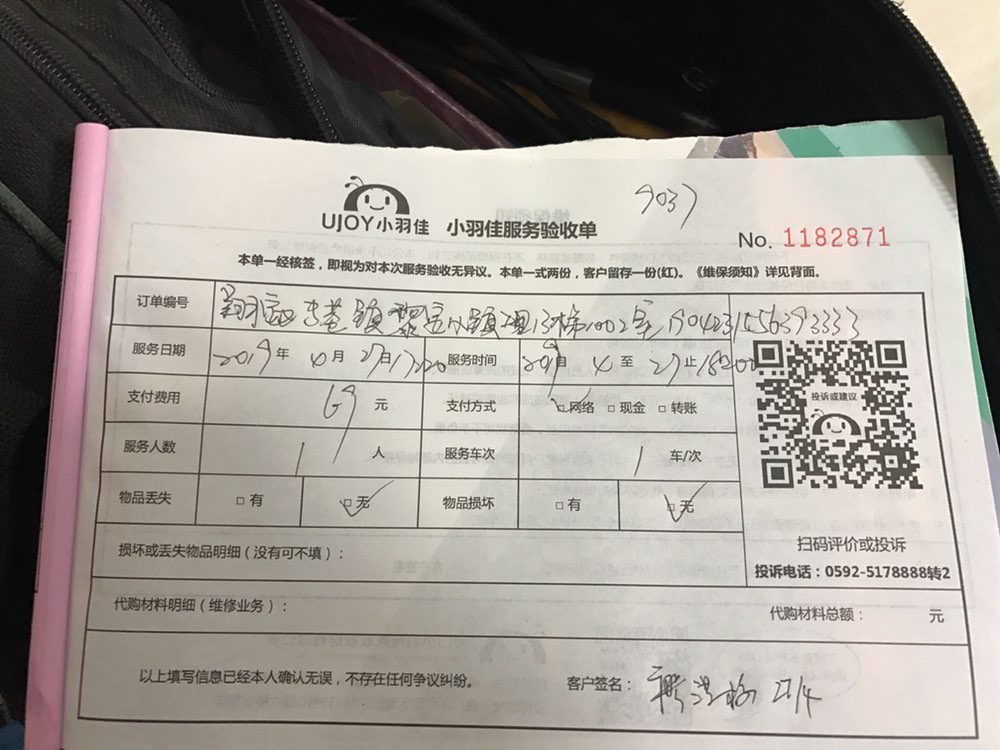 9037
UJOY小羽佳 小羽佳服务验收单
No. 1182871
本单一经核签，即视为对本次服务验收无异议。本单一式两份，客户留存一份(红)。《维保须知》详见背面。
订单编号 翔安区 镇 小镇 1002室
服务日期 2019年 4月 27日 17:20 服务时间 2019自 4至 27止 18:20:00
支付费用 69 元 支付方式 □网络 □现金 □转账
服务人数 1 人 服务车次 1 车/次
物品丢失 □有 □无 物品损坏 □有 □无
投诉或建议
扫码评价或投诉
投诉电话：0592-5178888转2
损坏或丢失物品明细（没有可不填）：
代购材料明细（维修业务）： 代购材料总额： 元
以上填写信息已经本人确认无误，不存在任何争议纠纷。 客户签名： 27/4